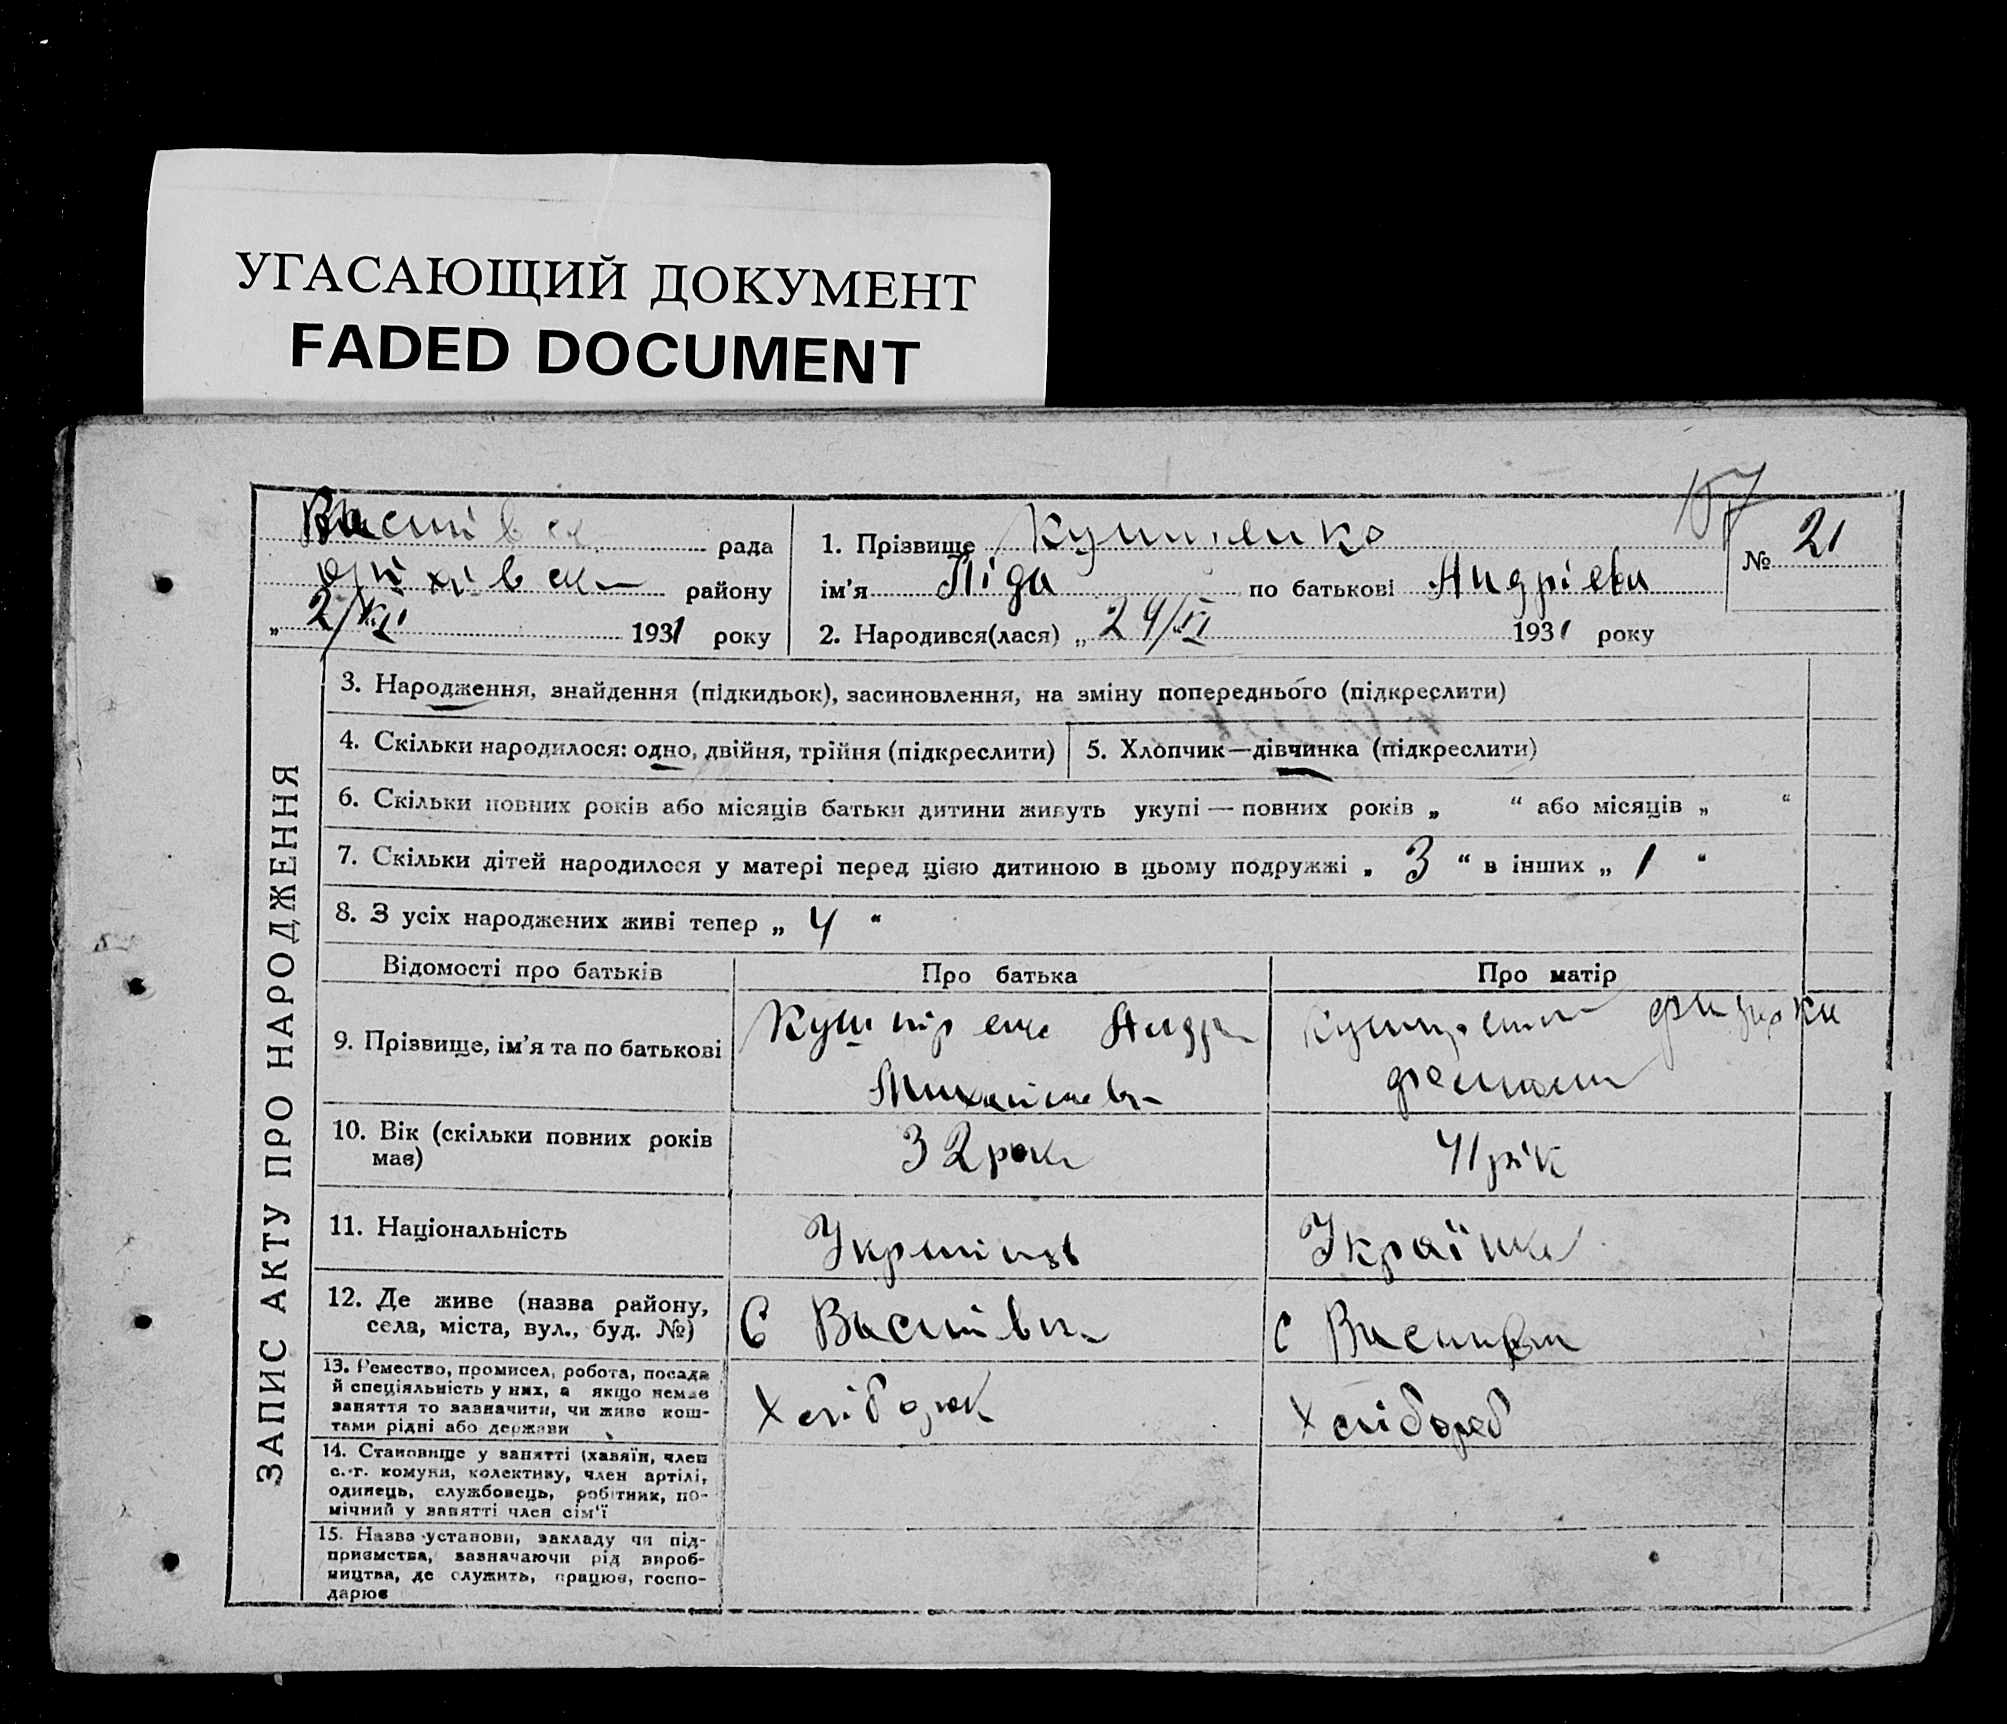 УГАСАЮЩИЙ ДОКУМЕНТ
FADED DOCUMENT
рада
району
„ 2/XII 1931 року
1. Прізвище
ім’я Ліда по батькові Андрієва
2. Народився(лася) „ 24/XI 1931 року
157
№ 21
ЗАПИС АКТУ ПРО НАРОДЖЕННЯ
3. Народження, знайдення (підкидьок), засиновлення, на зміну попереднього (підкреслити)
4. Скільки народилося: одно, двійня, трійня (підкреслити)
5. Хлопчик—дівчинка (підкреслити)
6. Скільки повних років або місяців батьки дитини живуть укупі — повних років „ “ або місяців „ “
7. Скільки дітей народилося у матері перед цією дитиною в цьому подружжі „ 3 “ в інших „ 1 “
8. З усіх народжених живі тепер „ 4 “
Відомості про батьків
Про батька
Про матір
9. Прізвище, ім’я та по батькові
10. Вік (скільки повних років
має)
32 роки
41 рік
11. Національність
Українець
Українка
12. Де живе (назва району,
села, міста, вул., буд. №)
С
с
13. Ремество, промисел, робота, посада
й спеціяльність у них, а якщо немає
заняття то зазначити, чи живе кош-
тами рідні або держави
Хлібороб
Хлібороб
14. Становище у занятті (хазяїн, член
с.-г. комуни, колективу, член артілі,
одинець, службовець, робітник, по-
мічний у занятті член сім’ї
15. Назва установи, закладу чи під-
приємства, зазначаючи рід вироб-
ництва, де служить, працює, госпо-
дарює